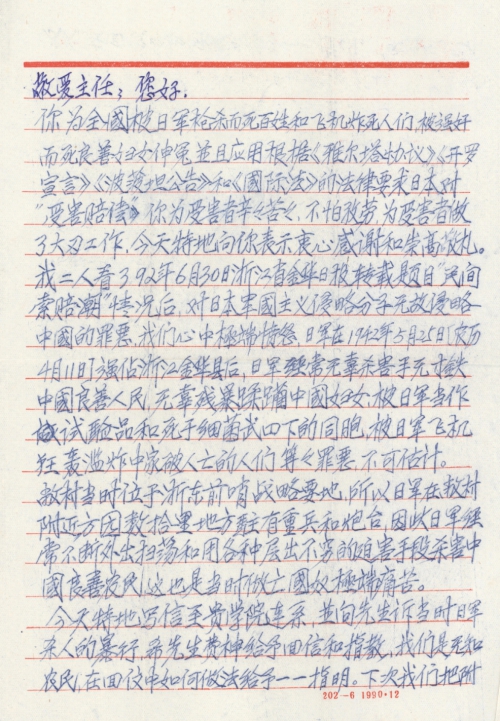 敬爱主任：您好.
你为全國被日军枪杀而死百姓和飞机炸死人们,被逼奸
而死良善妇女伸冤並且应用根据《雅尔塔协议》《开罗
宣言》《波茨坦公告》和《國际法》的法律要求日本对
"受害赔偿"你为受害者辛々苦々,不怕疲劳,为受害者做
了大力工作,今天特地向你表示衷心感谢和崇高敬礼。
我二人看了92年6月30日浙江省金华日报转载题目"民间
索赔潮"情况后,对日本军國主义侵略分子无故侵略
中國的罪悪,我们心中極端愤怒,日军在1942年5月25日(农历
4月11日)强佔浙江金华县后,日军经常无辜杀害手无寸铁
中國良善人民,无辜残暴蹂躏中國妇女,被日军当作
做试验品和死于细菌武四下的同胞,被日军飞机
狂轰滥炸中家破人亡的人们等々罪悪,不可估计。
敝村当时位于浙东前哨战略要地,所以日军在敝村
附近方园数拾里地方驻有重兵和炮台,因此日军经
常不断外出扫荡和用各种层出不穷的迫害手段杀害中
國良善农民,这也是当时做亡國奴極端痛苦。
今天特地写信至贵学院连系,並向先生诉当时日军
杀人的暴行,希先生费神给予回信和指教,我们是无知
农民,在回信中如何做法给予一一指明。下次我们把附
202-6 1990·12